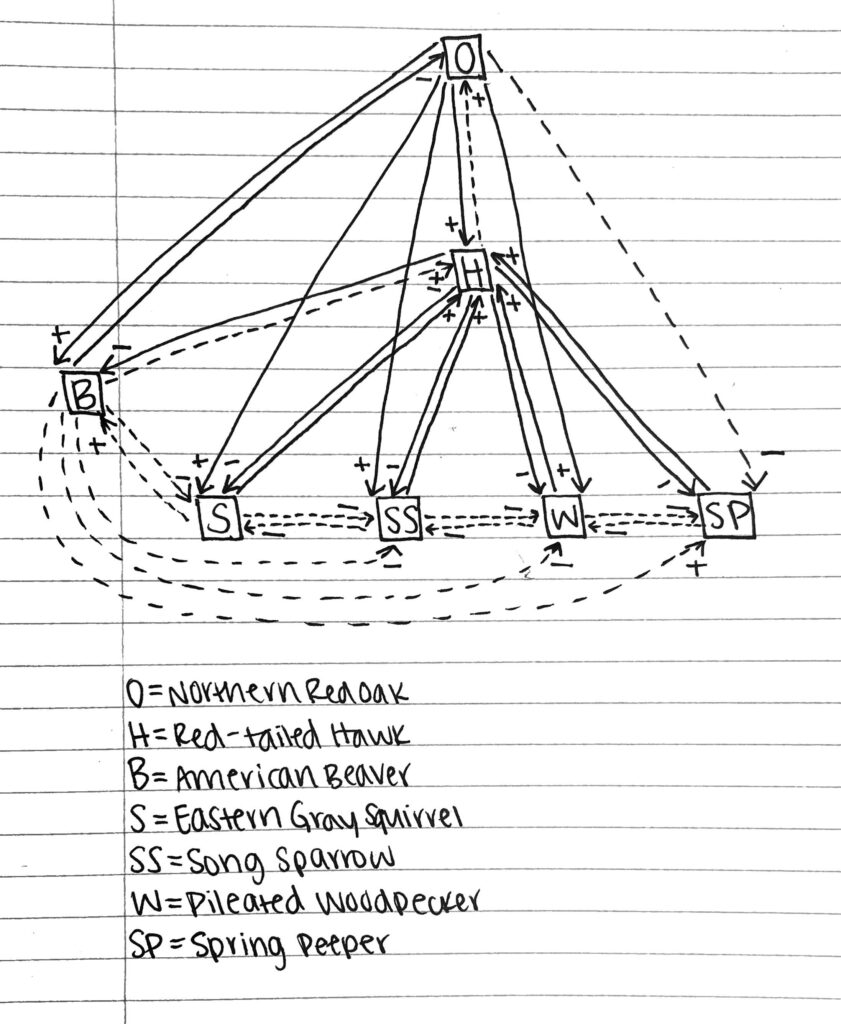 O
-
+
+
H
+
+
-
+
+
+
+
-
B
+
-
+
-
+
-
-
+
-
-
S
-
-
SS
-
-
W
-
-
SP
-
-
+
O=Northern Red Oak
H=Red-tailed Hawk
B=American Beaver
S=Eastern Gray Squirrel
SS=Song Sparrow
W=Pileated Woodpecker
SP=Spring Peeper